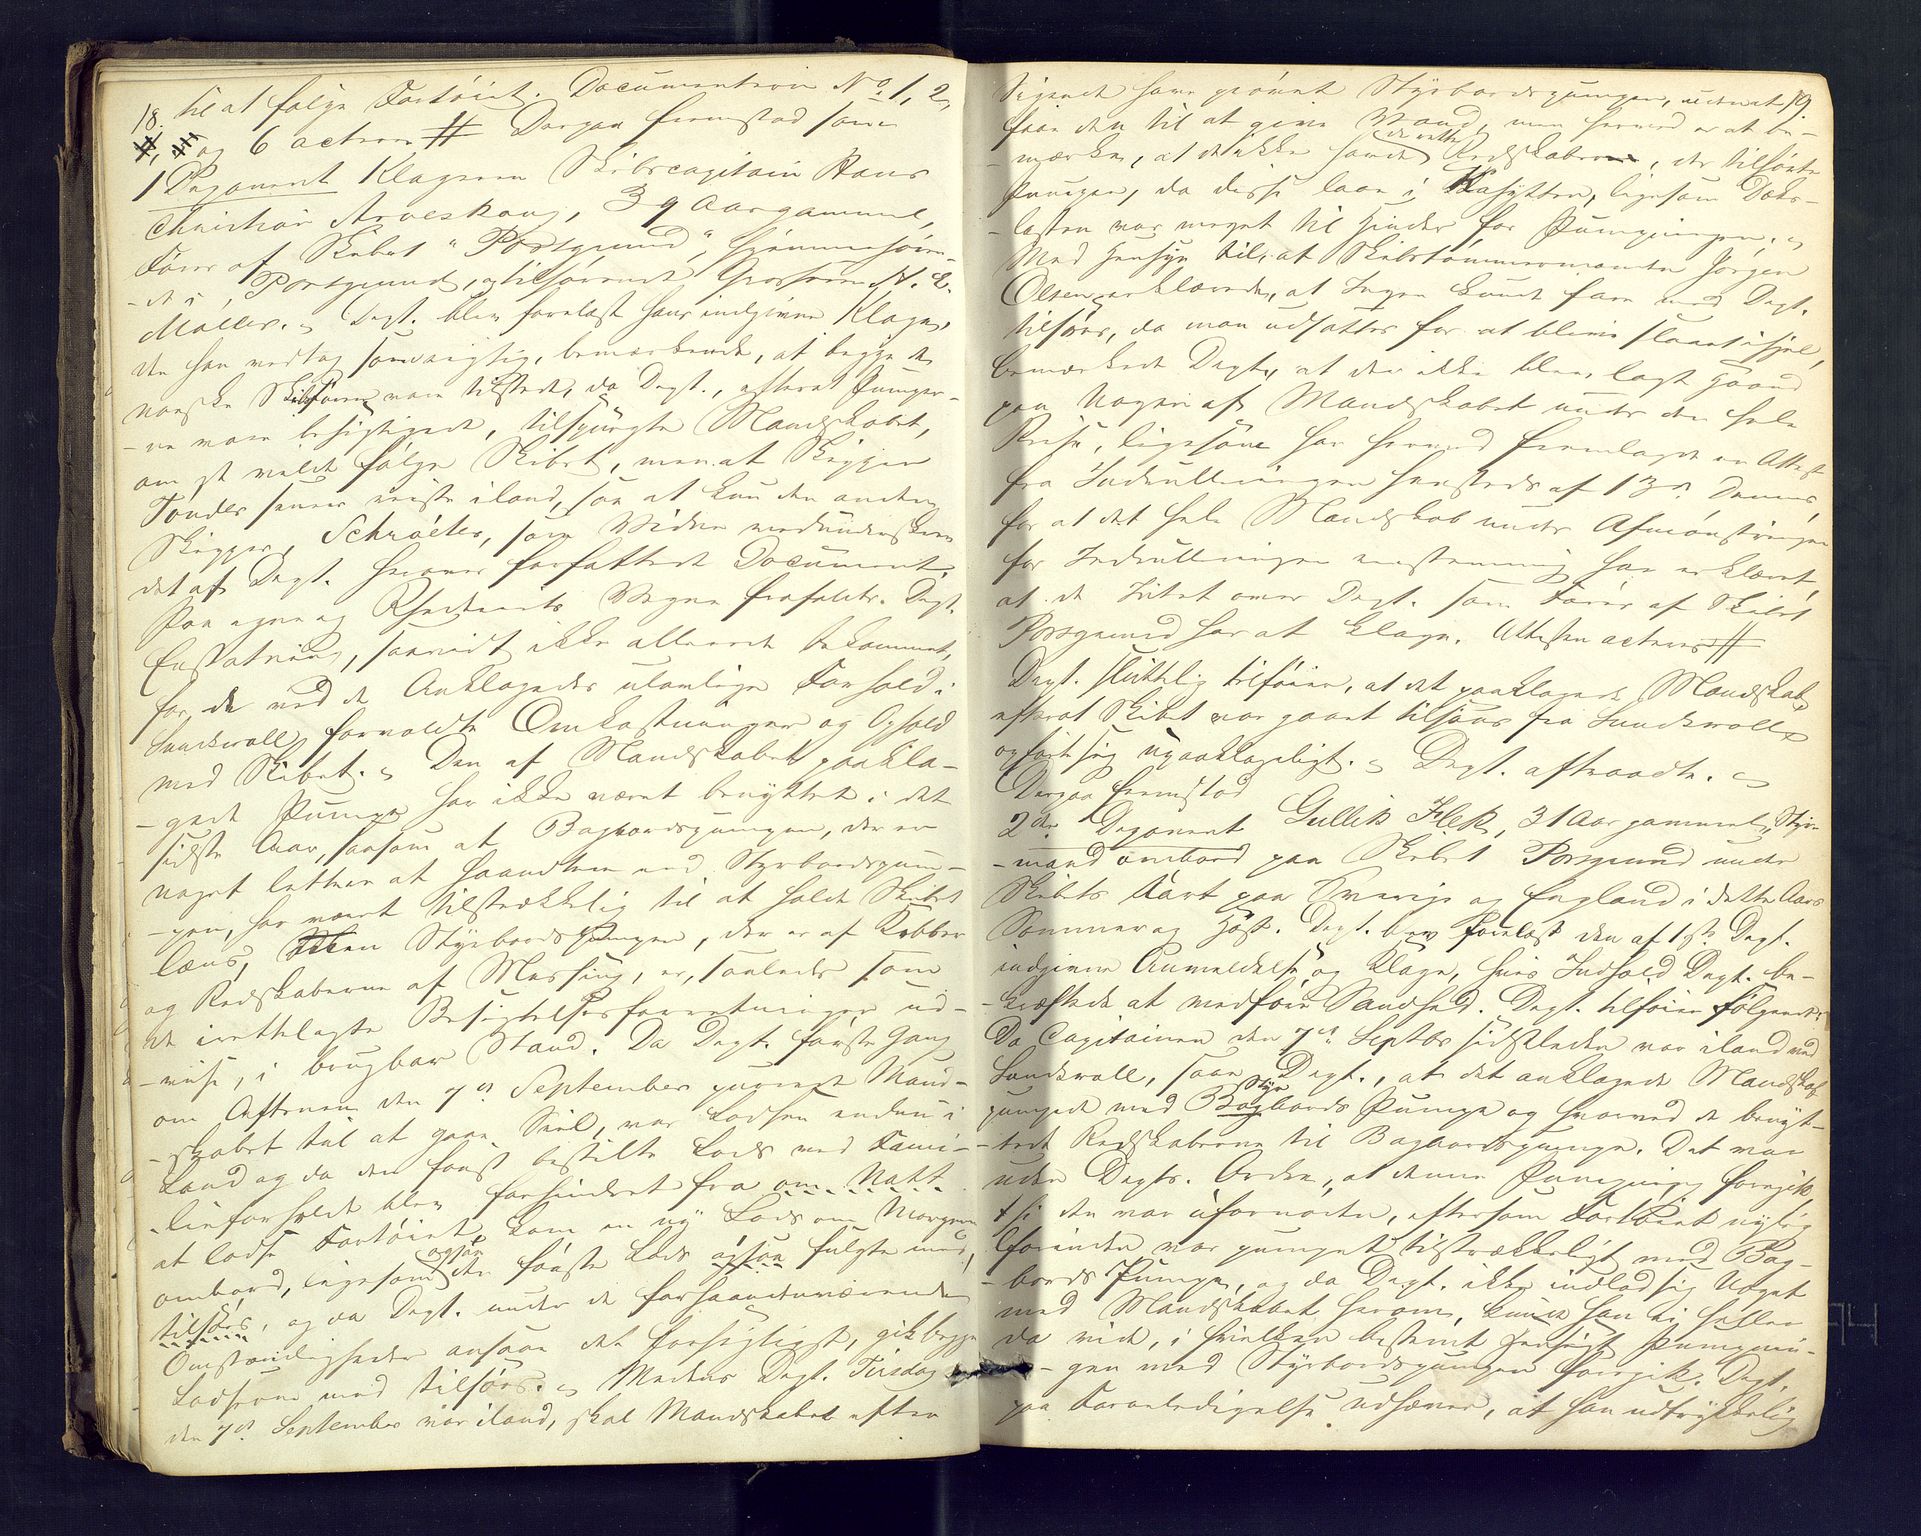 18. til at følge Fartøiet. Documenterne No 1, 2,
#, # og 6 acteres # Derpaa fremstod som
1 Deponent Klageren Skibscapitain Hans
Christian Arveskoug, 39 Aar gammel,
Fører af Skibet "Porsgrund", hjemmehøren-
-de i Porsgrund, og tilhørende Grosserer N. E.
Møller. „ Dept. blev forelæst hans indgivne Klage,
den han vedtog som rigtig, bemærkende, at begge de
norske Skibsførere vare tilstede, da Dept., efterat Pumper-
-ne vare besigtigede, tilspurgte Mandskabet,
om det vilde følge Skibet, men at Skipper
Tønder senere reiste iland, saa at kun den anden
Skipper, Schrøeter, som Vidne medunderskrev
det af Dept. herover forfattede Document.
Paa egne og Rhederiets Vegne frafaldt Dept.
Erstatning, saavidt ikke allerede bekommet,
for de ved de Anklagedes ulovlige Forhold i
Sundswall forvoldte Omkostninger og Ophold
med Skibet. „ Den af Mandskabet paakla-
-gede Pumpe har ikke været benyttet i det
sidste Aar, saasom at Bagbordspumpen, der er
noget lettere at haandtere end Styrbordspum-
-pen, har været tilstrækkelig til at holde Skibet
læns, Men Styrbordspumpen, der er af Kobber
og Redskaberne af Messing, er, saaledes som
de irettelagte Besigtelsesforretninger ud-
-vise, i brugbar Stand. Da Dept. første Gang
om Aftenen den 7de September purrede Mand-
-skabet til at gaae Seil, var Lodsen endnu i
Land og da den først bestilte Lods ved Fami-
-lieforhold blev forhindret fra om Natt
at lodse Fartøiet, kom en ny Lods om Morgenen
ombord, ligesom ogsaa den første Lods ogsaa fulgte med,
tilsøes, og da Dept. under de forhaandenværende
Omstændigheder ansaae det forsigtigst, gik begge
Lodserne med tilsøes. „ Medens Dept. Tirsdag
den 7de September var iland, skal Mandskabet efter
Sigende have prøvet Styrbordspumpen, uden at 19.
faae den til at give Vand, men herved er at be-
-mærke, at de ikke havde de rette Redskaber, der tilhørte
Pumpen, da disse laae i Kahytten, ligesom Dæks-
-lasten var meget til Hinder for Pumpningen. „
Med Hensyn til, at Skibstømmermanden Jørgen
Olsen erklærede, at Ingen kunde fare med Dept.
tilsøes, da man udsattes for at blive slaaet ihjel,
bemærkede Dept., at der ikke blev lagt Haand
paa Nogen af Mandskabet under den hele
Reise, ligesom han herved fremlagde en Attest
fra Indrulleringen hersteds af 13de Dennes,
for at det hele Mandskab under Afmønstringen
for Indrulleringen eenstemmig har erklæret,
at de Intet over Dept. som Fører af Skibet
Porsgrund har at klage. Attesten acteres #
Dept. sluttelig tilføier, at det paaklagede Mandskab,
efterat Skibet var gaaet tilsøes fra Sundswall
opførte sig upaaklageligt. „ Dept. aftraadte. „
Derpaa fremstod
2den Deponent Gullik Flek, 31 Aar gammel, Styr-
-mand ombord paa Skibet Porsgrund under
Skibets Fart paa Sverige og England i dette Aars
Sommer og Høst. Dept. blev forelæst den af 1ste Dept.
indgivne Anmeldelse og Klage, hvis Indhold Dept. be-
-kræftede at medføre Sandhed. Dept. tilføier Følgende:
Da Capitainen den 7de Septbr sidstleden var iland ved
Sundswall, saae Dept., at det anklagede Mandskab
pumpede med Bagbords Styr Pumpe og hvorved de benyt-
-tede Redskaberne til Bagbordspumpe. Det var
uden Depts. Ordre, at denne Pumpning foregik,
thi den var ufornøden, eftersom Fartøiet nylig
forinden var pumpet tilstrækkeligt med Bag-
-bords Pumpe, og da Dept. ikke indlod sig Noget
med Mandskabet herom, kunde han ei heller
da vide, i hvilken bestemt Hensigt Pumpnin-
-gen med Styrbordspumpen foregik. Dept.
paa Foranledigelse udsiger, at han udtrykkelig